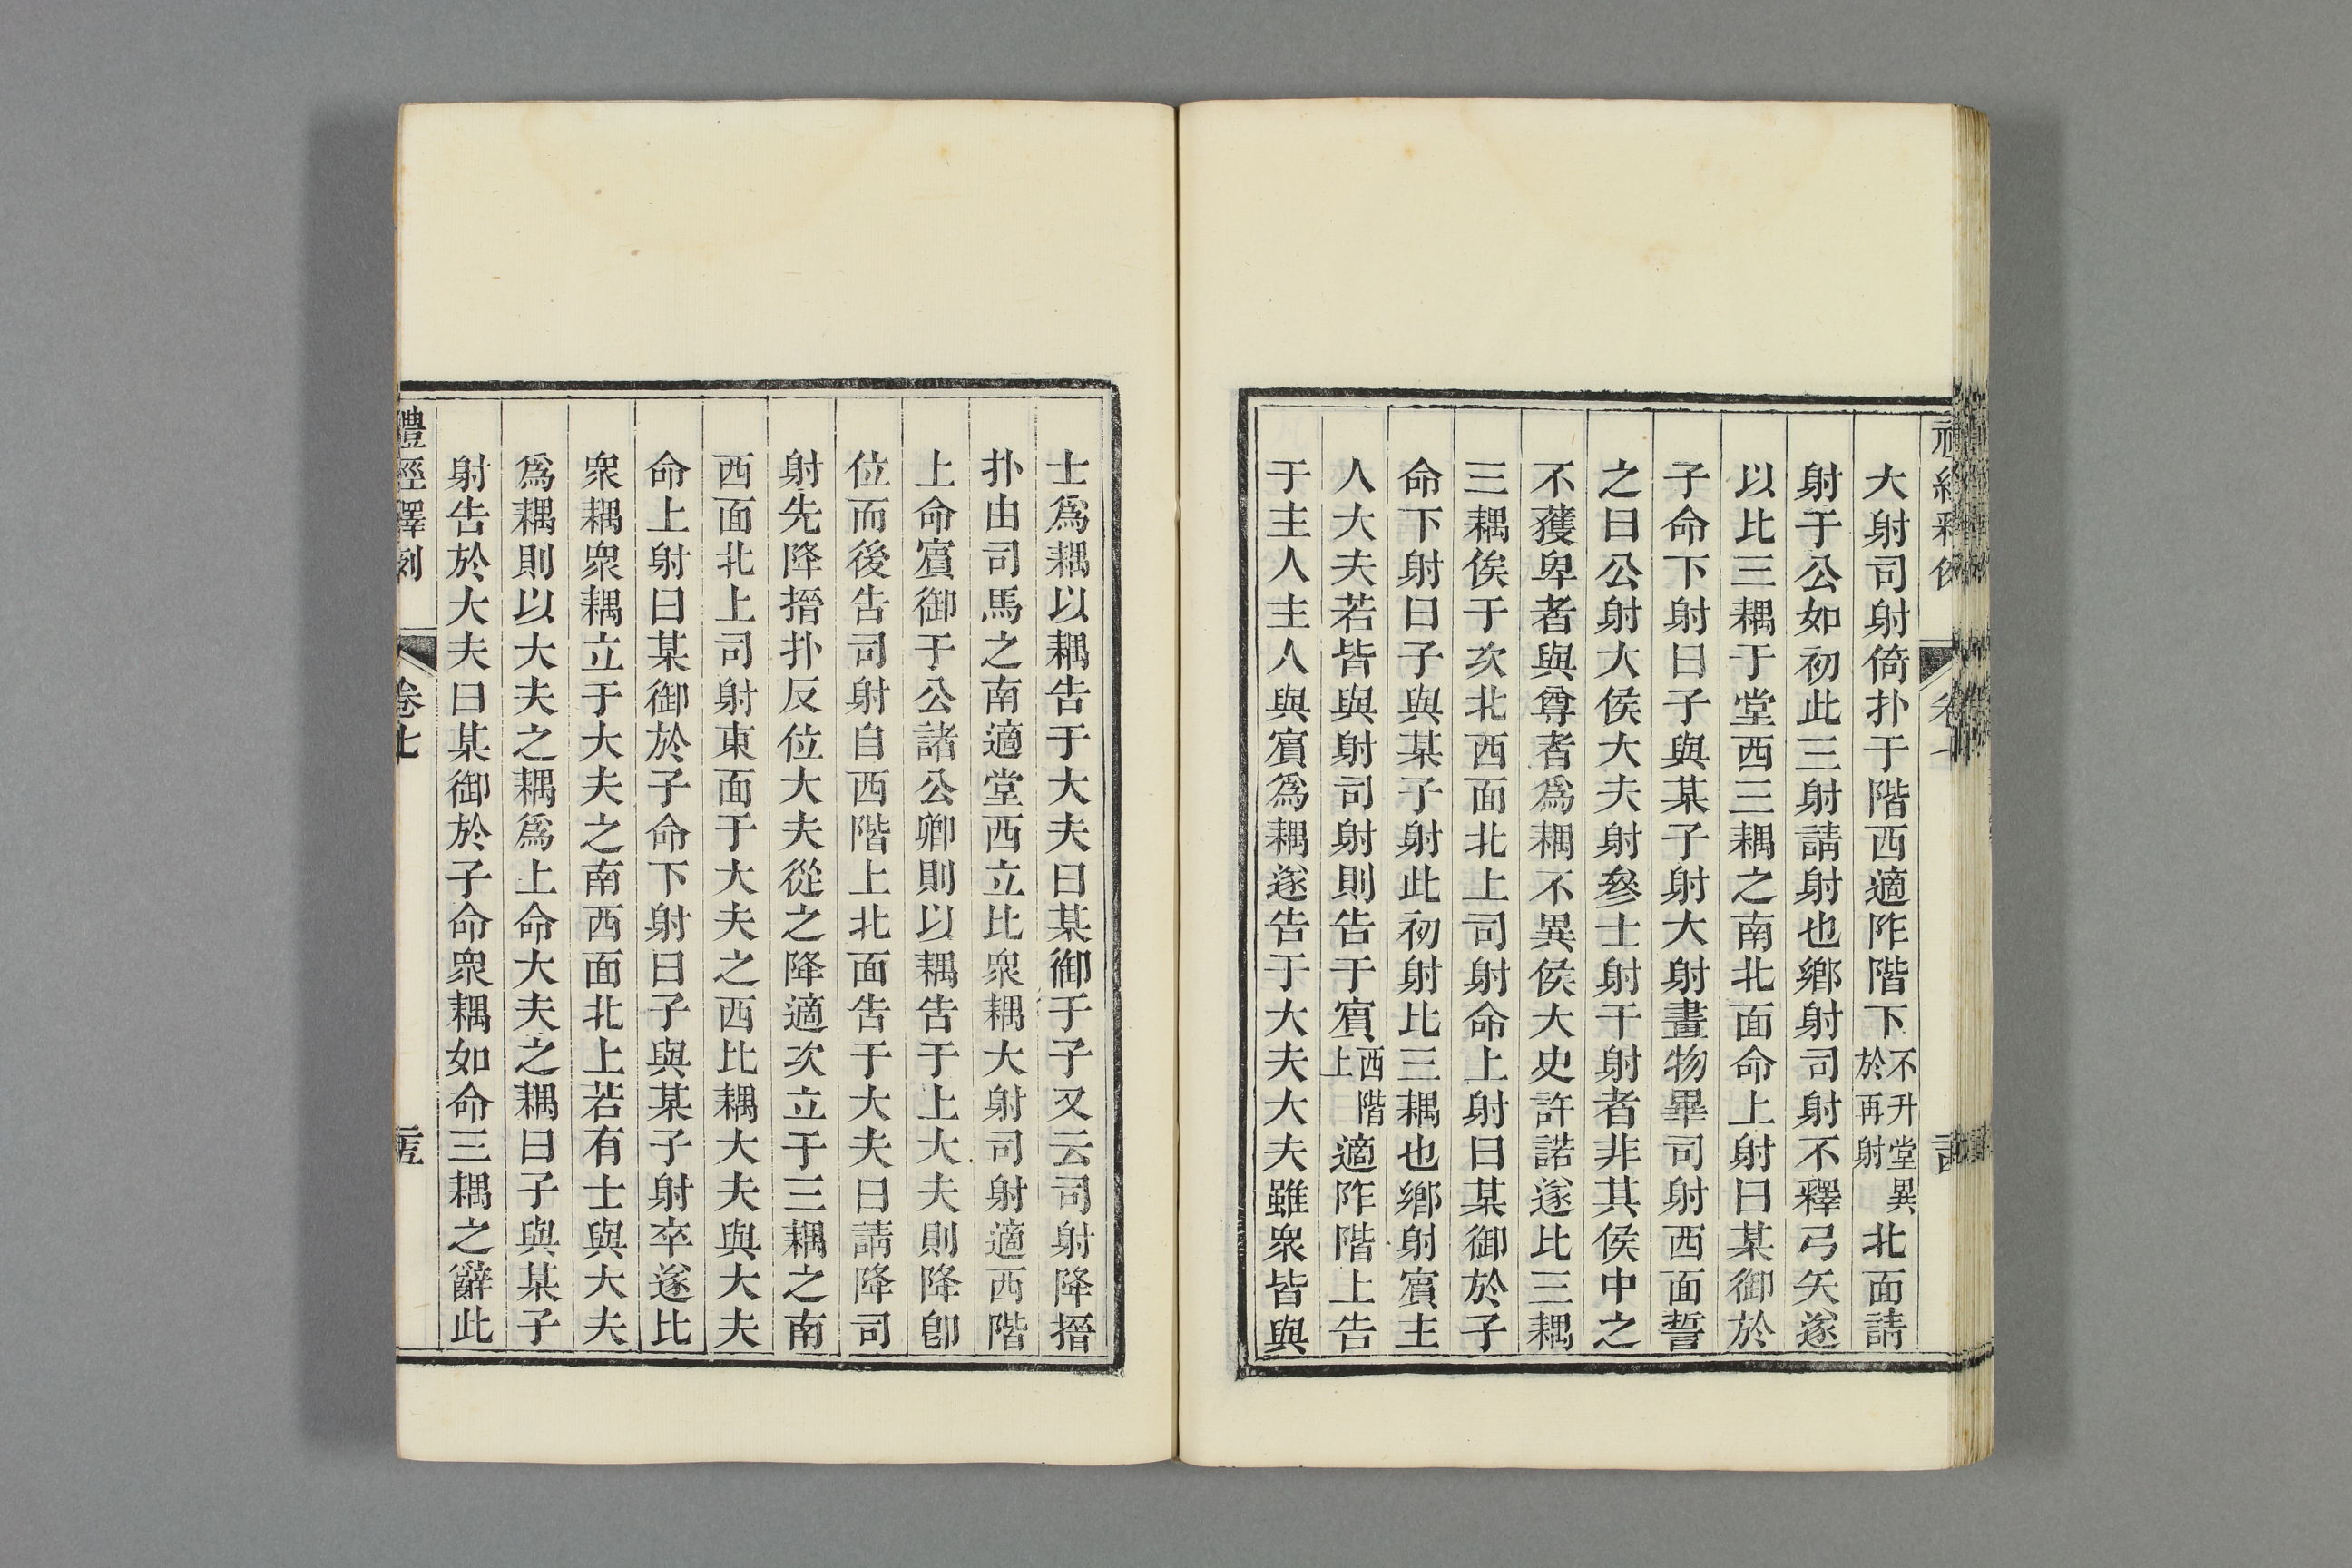 大射司射倚扑于階西適阼階下不升堂異於再射北面請
射于公如初此三射請射也鄉射司射不釋弓矢遂
以比三耦于堂西三耦之南北面命上射曰某御於
子命下射曰子與某子射大射畫物畢司射西面誓
之曰公射大侯大夫射參士射干射者非其侯中之
不獲卑者與尊者爲耦不異侯大史許諾遂比三耦
三耦俟于次北西面北上司射命上射曰某御於子
命下射曰子與某子射此初射比三耦也鄉射賓主
人大夫若皆與射司射則告于賓西階上適阼階上告
于主人主人與賓爲耦遂告于大夫大夫雖衆皆與
士爲耦以耦告于大夫曰某御于子又云司射降搢
扑由司馬之南適堂西立比衆耦大射司射適西階
上命賓御于公諸公卿則以耦告于上大夫則降卽
位而後告司射自西階上北面告于大夫曰請降司
射先降搢扑反位大夫從之降適次立于三耦之南
西面北上司射東面于大夫之西比耦大夫與大夫
命上射曰某御於子命下射曰子與某子射卒遂比
衆耦衆耦立于大夫之南西面北上若有士與大夫
爲耦則以大夫之耦爲上命大夫之耦曰子與某子
射告於大夫曰某御於子命衆耦如命三耦之辭此
卷七